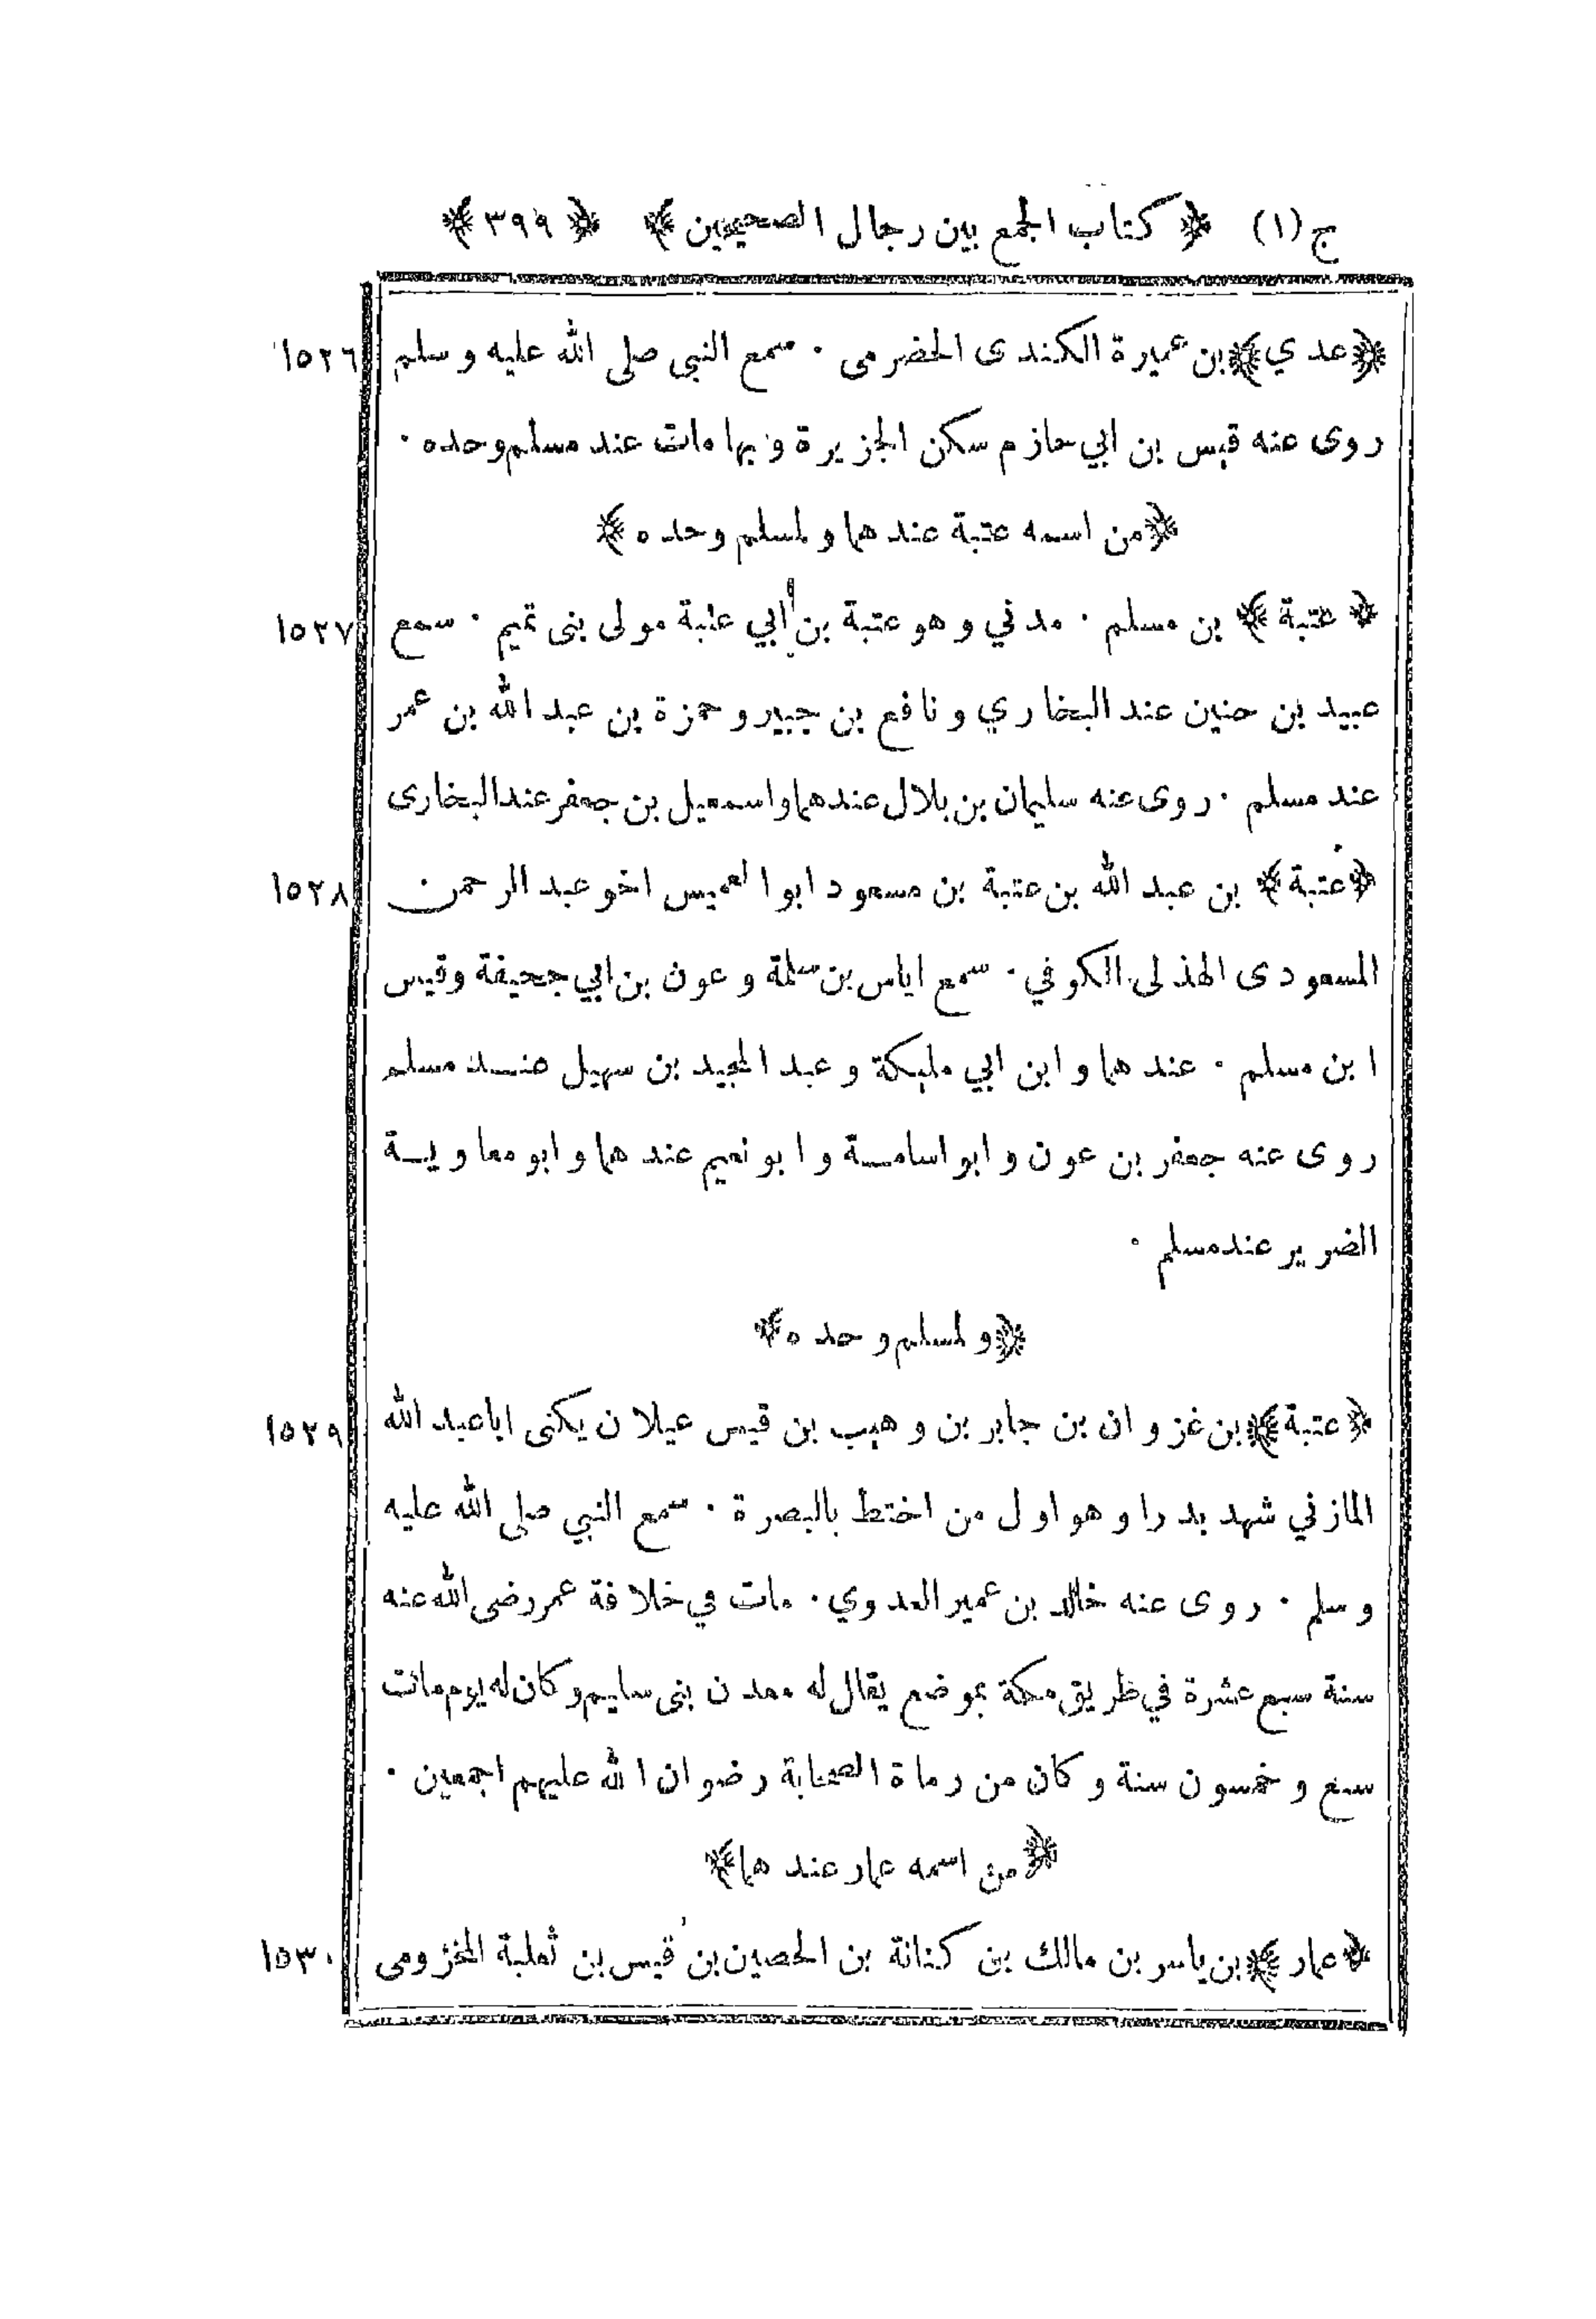 ج (١) ﴿ كتاب الجمع بين رجال الصحيحين ﴾ ﴿ ٣٩٩ ﴾
﴿عدي﴾ بن عميرة الكندى الحضرمى ٠ سمع النبى صلى الله عليه وسلم ١٥٢٦
روى عنه قيس بن ابي حازم سكن الجزيرة وبها مات عند مسلم وحده ٠
﴿من اسمه عتبة عندهما ولمسلم وحده﴾
﴿عتبة﴾ بن مسلم ٠ مدني وهو عتبة بن أبي عتبة مولى بنى تميم ٠ سمع ١٥٢٧
عبيد بن حنين عند البخاري ونافع بن جبير وحمزة بن عبد الله بن عمر
عند مسلم ٠ روى عنه سليمان بن بلال عندهما واسمعيل بن جعفر عند البخارى
﴿عتبة﴾ بن عبد الله بن عتبة بن مسعود ابو العميس اخو عبد الرحمن ١٥٢٨
المسعودى الهذلى الكوفي ٠ سمع اياس بن سلمة وعون بن ابي جحيفة وقيس
ابن مسلم ٠ عندهما وابن ابي مليكة وعبد المجيد بن سهيل عند مسلم
روى عنه جعفر بن عون وابو اسامة وابو نعيم عندهما وابو معاوية
الضرير عند مسلم ٠
﴿ولمسلم وحده﴾
﴿عتبة﴾ بن غزوان بن جابر بن وهيب بن قيس عيلان يكنى ابا عبد الله ١٥٢٩
المازني شهد بدرا وهو اول من اختط بالبصرة ٠ سمع النبي صلى الله عليه
وسلم ٠ روى عنه خالد بن عمير العدوي ٠ مات في خلافة عمر رضى الله عنه
سنة سبع عشرة في طريق مكة بموضع يقال له معدن بنى سليم وكان له يوم مات
سبع وخمسون سنة وكان من رماة الصحابة رضوان الله عليهم اجمعين ٠
﴿من اسمه عمار عندهما﴾
﴿عمار﴾ بن ياسر بن مالك بن كنانة بن الحصين بن قيس بن ثعلبة المخزومى ١٥٣٠